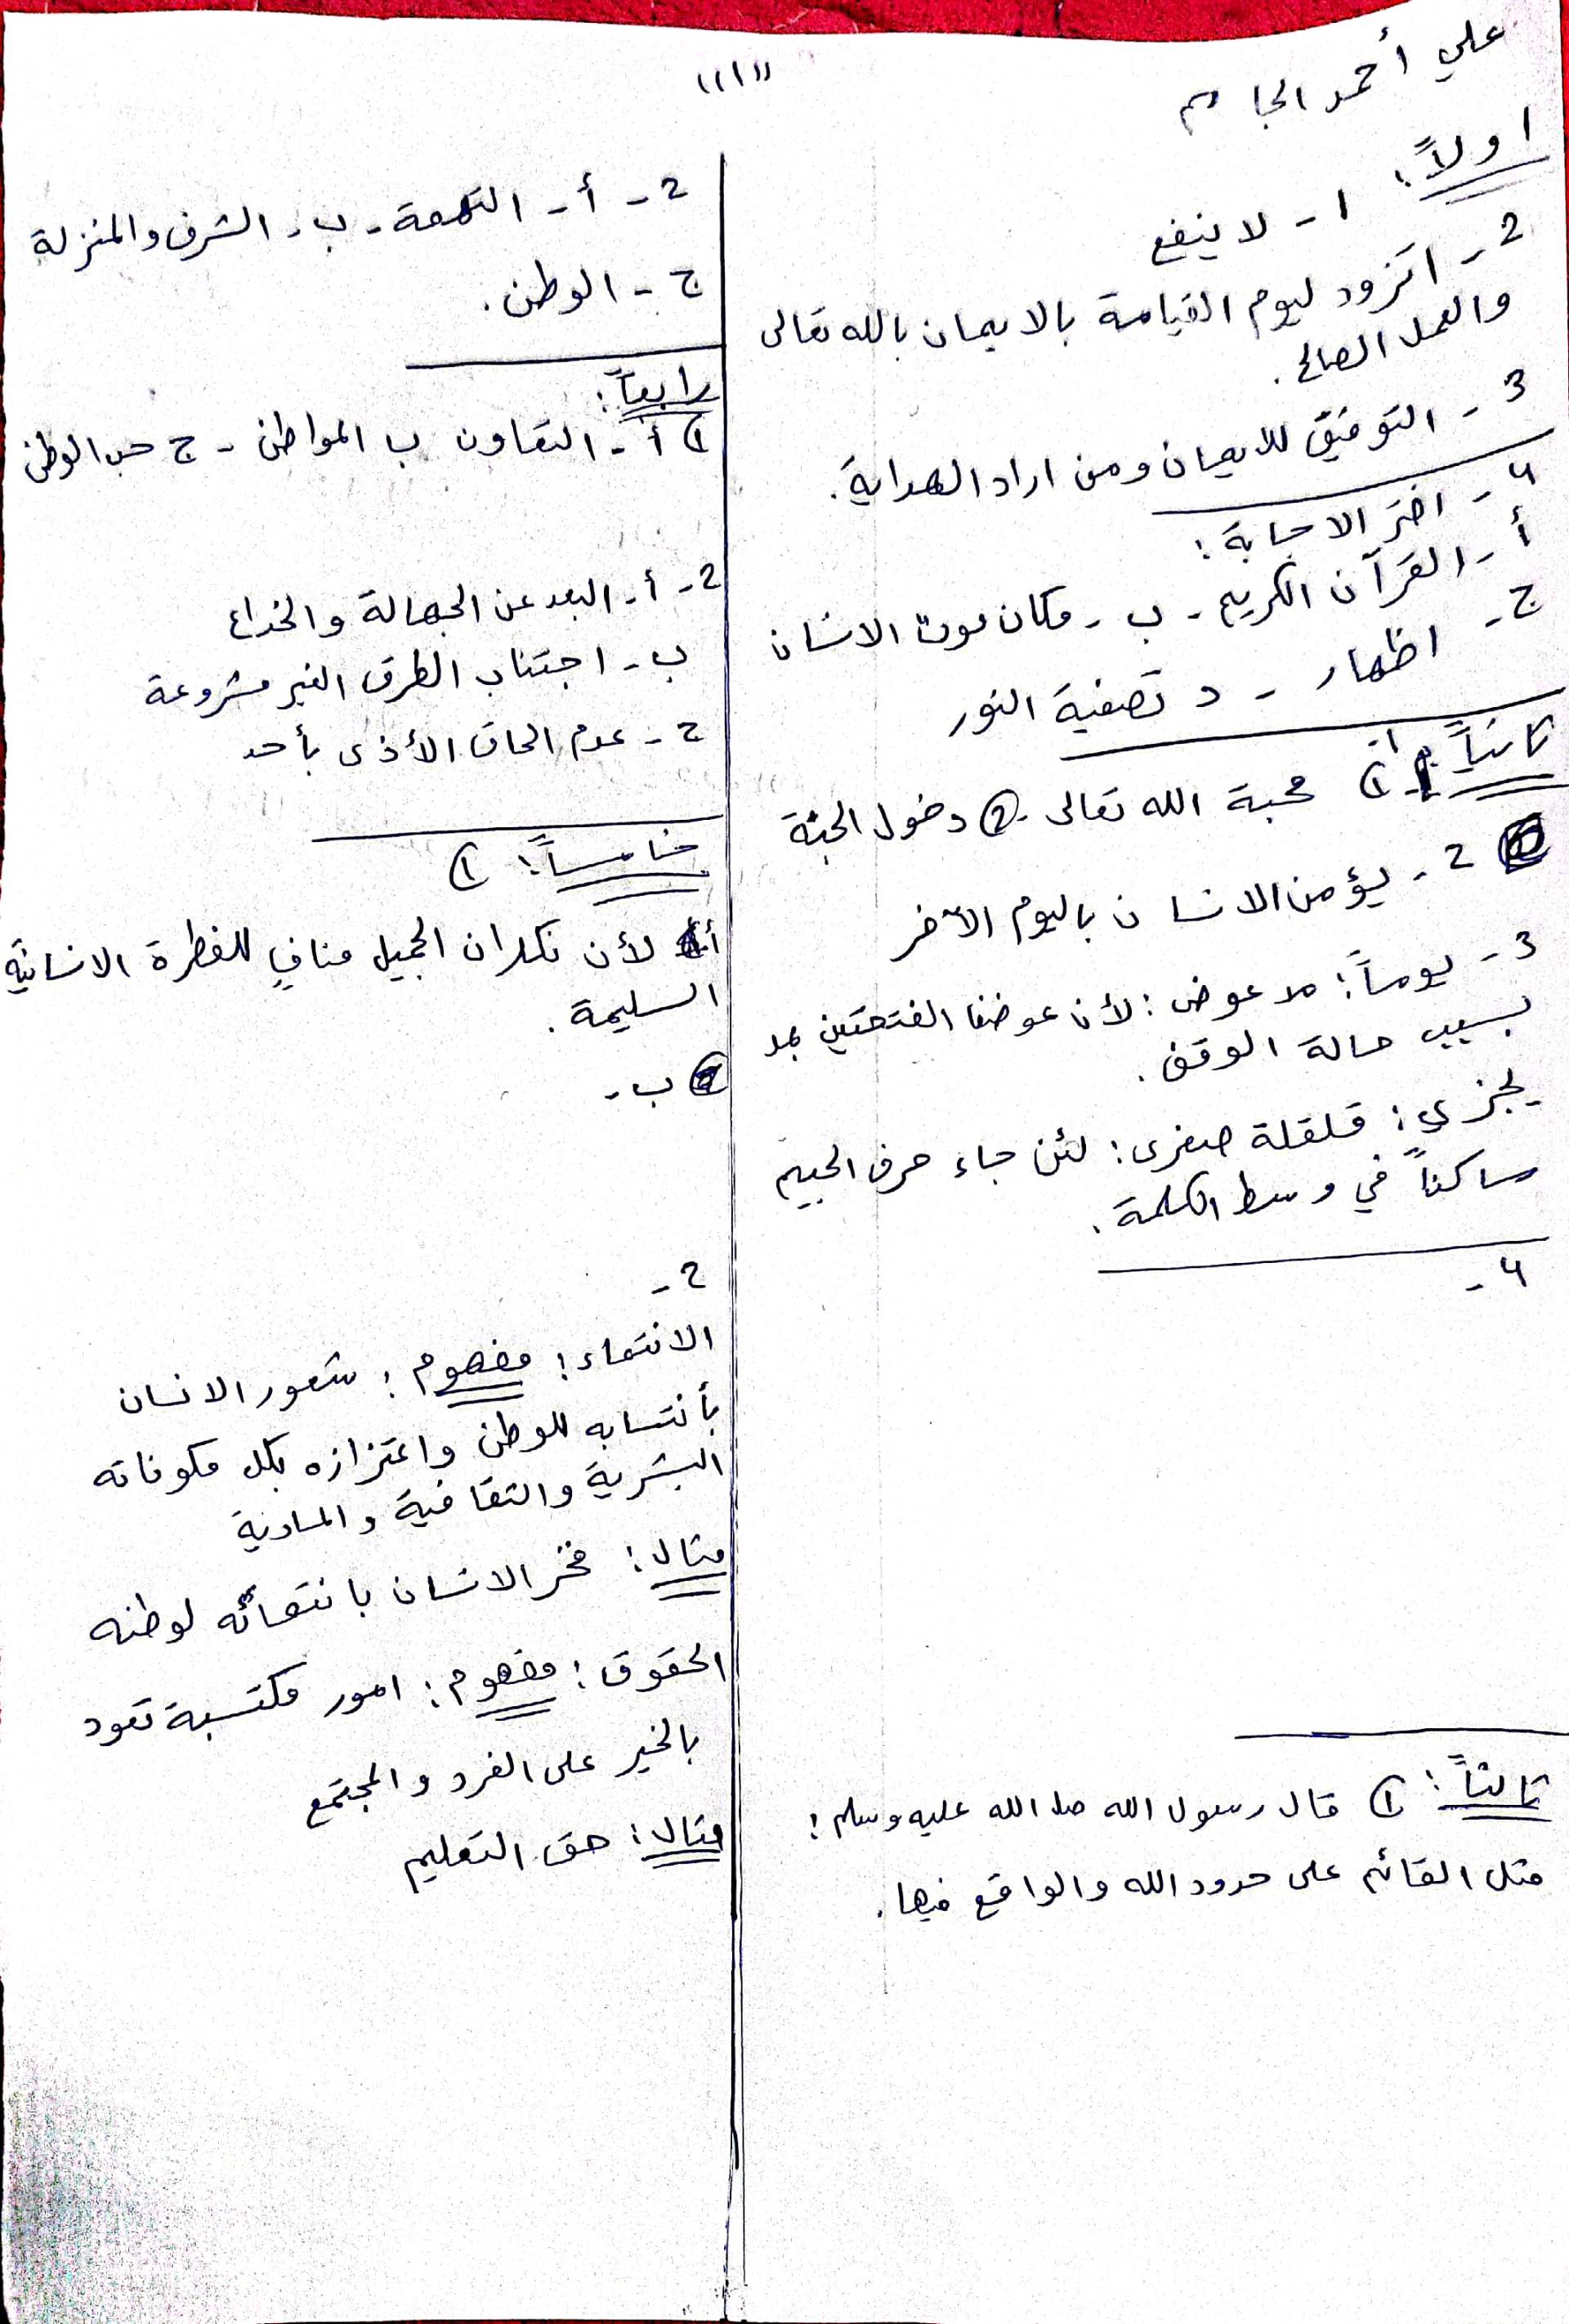 علي أحمد الجاسم
((1))
اولاً:
1- لا ينفع
2- اتزود ليوم القيامة بالايمان بالله تعالى
والعمل الصالح.
3- التوفيق للايمان ومن اراد الهداية.
4- اختر الاجابة:
أ- القرآن الكريم - ب- مكان موت الانسان
ج- اظهار - د تصفية النور
ثانياً: 1) محبة الله تعالى - 2) دخول الجنة
2- يؤمن الانسان باليوم الآخر
3- يوماً: مد عوض: لأن عوضنا الفتحتين بمد
بسبب حالة الوقف.
يجزي: قلقلة صغرى: لئن جاء حرف الجيم
ساكناً في وسط الكلمة.
4-
ثالثاً: 1) قال رسول الله صلا الله عليه وسلم:
مثل القائم على حدود الله والواقع فيها.
2- أ- التهمة - ب- الشرف والمنزلة
ج- الوطن.
رابعاً:
1) أ- التعاون ب المواطن - ج حب الوطن
2- أ- البعد عن الجهالة والخداع
ب- اجتناب الطرق الغير مشروعة
ج- عدم الحاق الأذى بأحد
خامساً: 1)
أ- لأن نكران الجميل منافٍ للفطرة الانسانية
السليمة.
ب-
2-
الانتماء: مفهوم: شعور الانسان
بأنتسابه للوطن واعتزازه بكل مكوناته
البشرية والثقافية والمادية
مثال: فخر الانسان بانتمائه لوطنه
الحقوق: مفهوم: امور مكتسبة تعود
بالخير على الفرد والمجتمع
مثال: حق التعليم